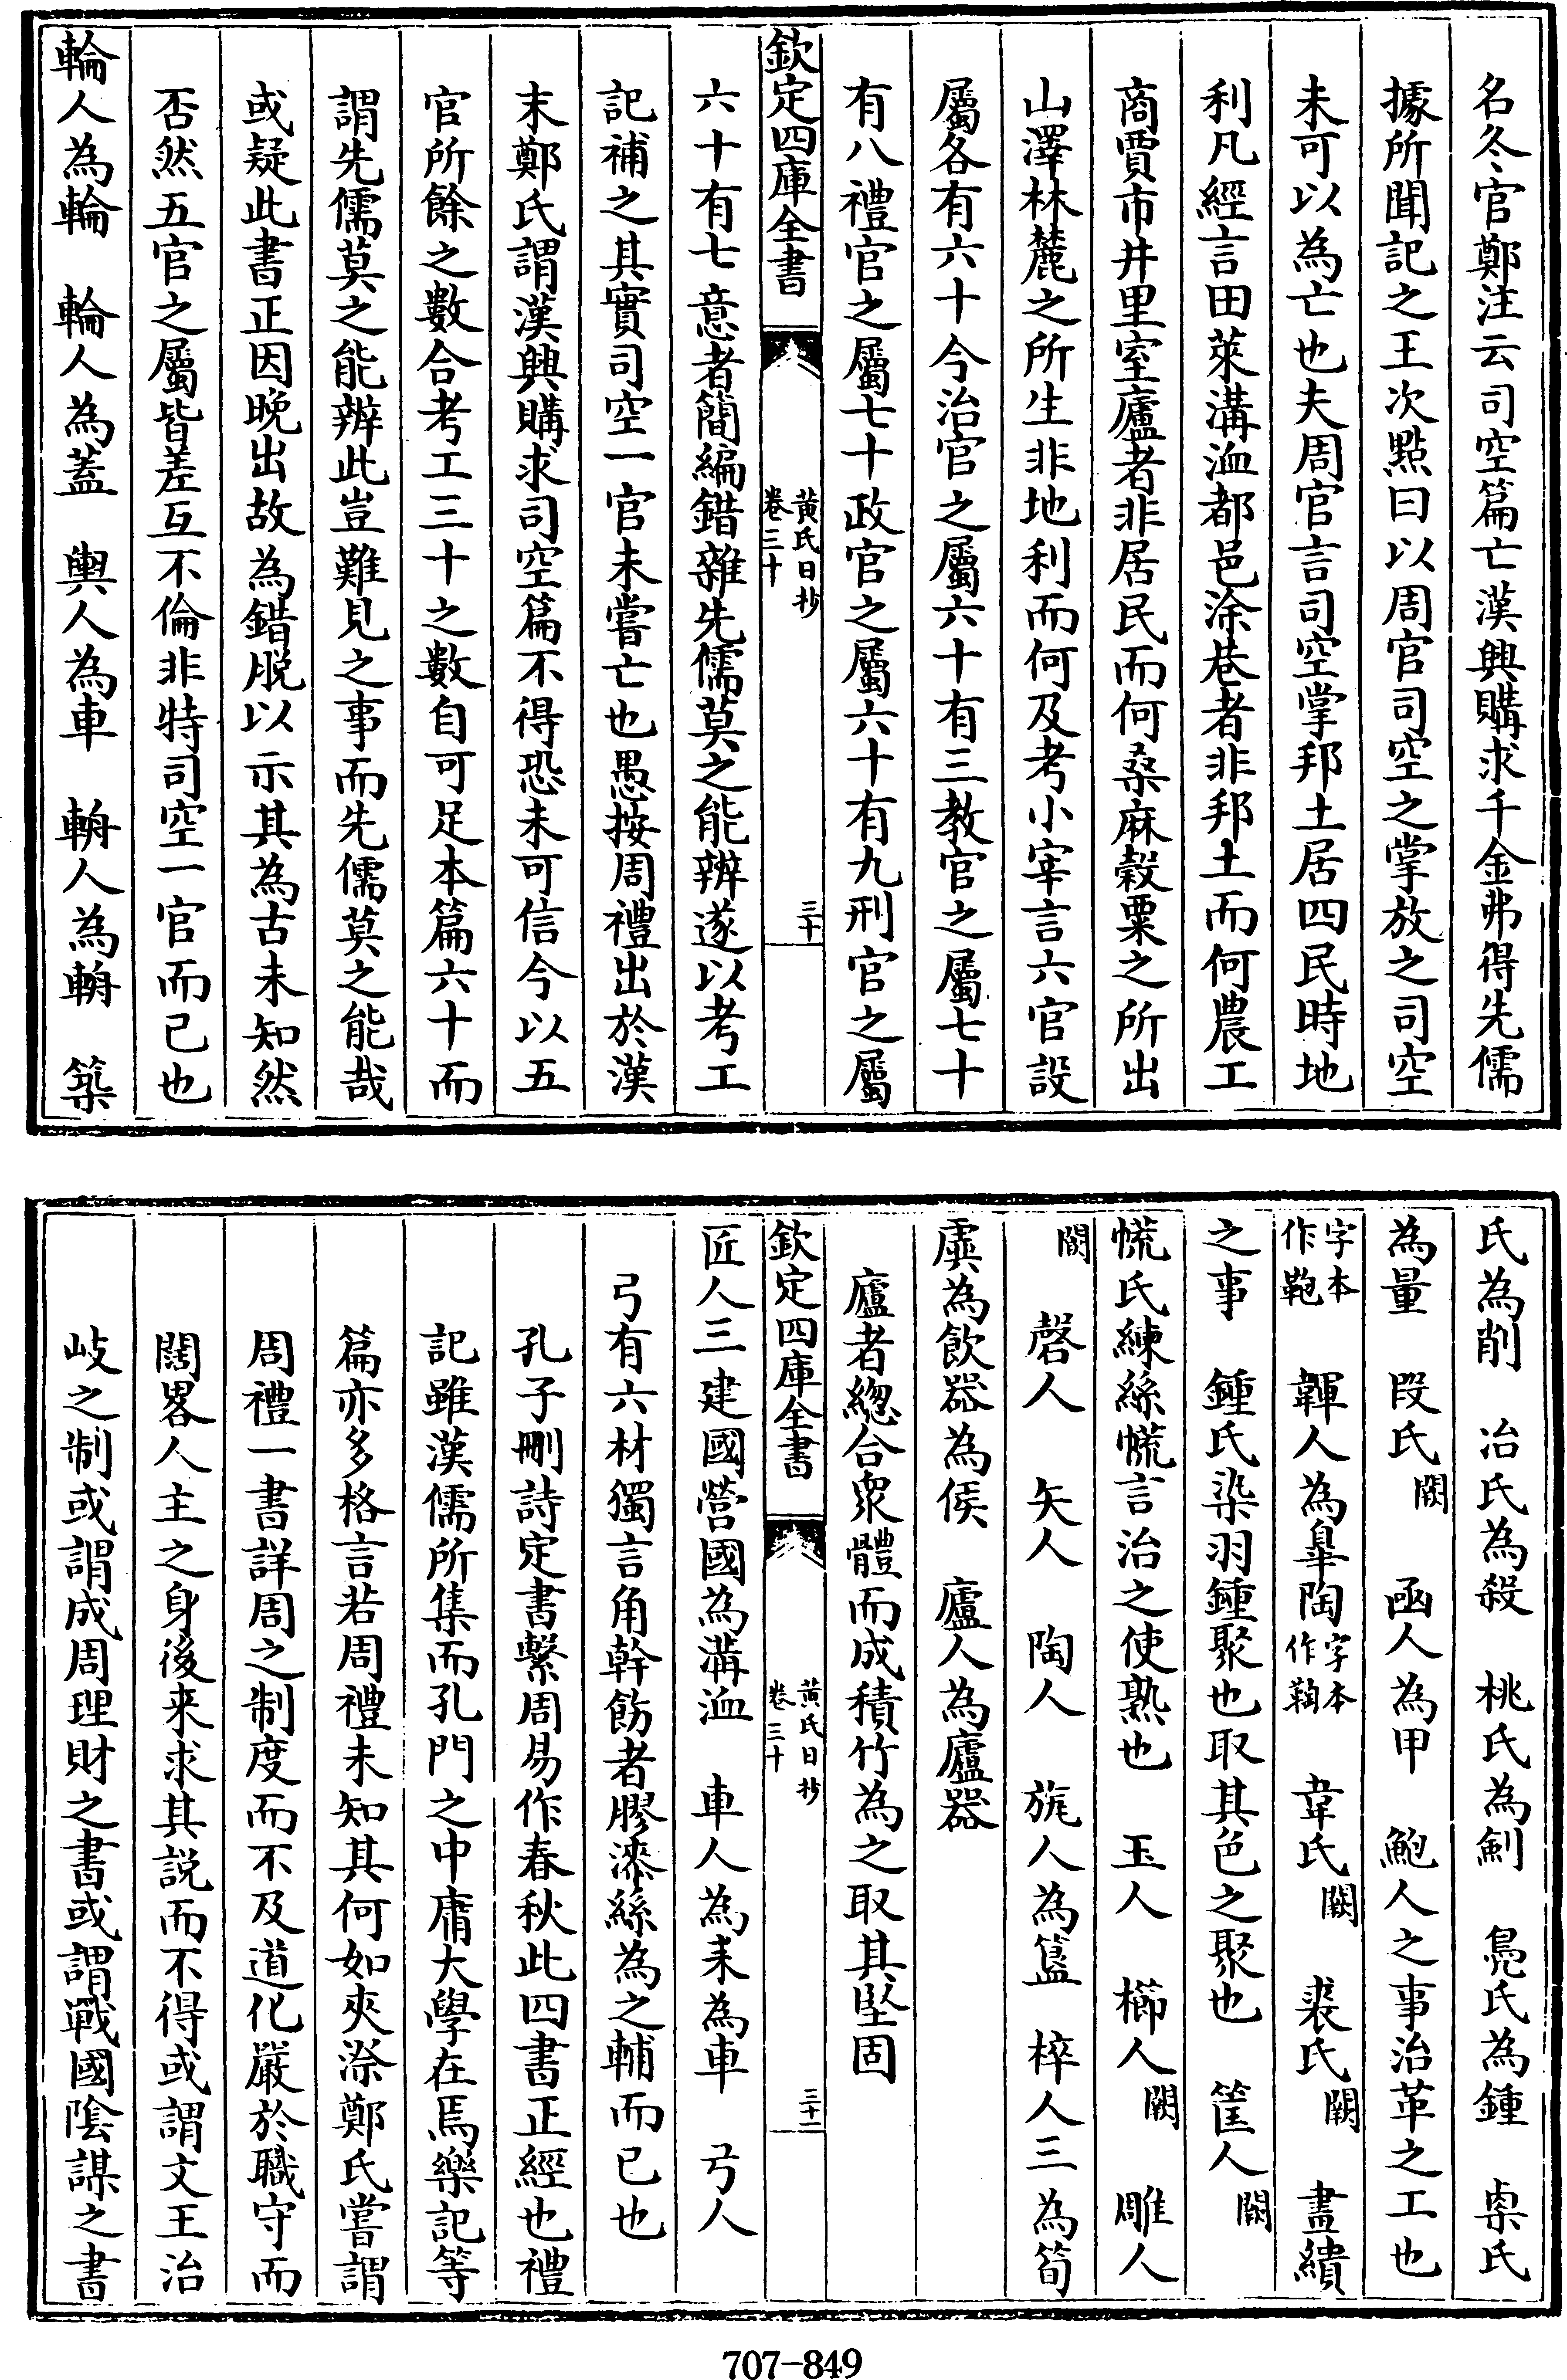 名冬官鄭注云司空篇亡漢興購求千金弗得先儒
據所聞記之王次㸃曰以周官司空之掌放之司空
未可以為亡也夫周官言司空掌邦土居四民時地
利凡經言田萊溝洫都邑涂巷者非邦土而何農工
商賈市井里室廬者非居民而何桑麻穀粟之所出
山澤林麓之所生非地利而何及考小宰言六官設
屬各有六十今治官之屬六十有三教官之屬七十
有八禮官之屬七十政官之屬六十有九刑官之屬
欽定四庫全書 黄氏日抄 卷三十 三十
六十有七意者簡編錯雜先儒莫之能辨遂以考工
記補之其實司空一官未嘗亡也愚按周禮出於漢
末鄭氏謂漢興購求司空篇不得恐未可信今以五
官所餘之數合考工三十之數自可足本篇六十而
謂先儒莫之能辨此豈難見之事而先儒莫之能哉
或疑此書正因晚出故為錯脱以示其為古未知然
否然五官之屬皆差互不倫非特司空一官而已也
輪人為輪 輪人為蓋 輿人為車 輈人為輈 築
氏為削 冶氏為殺 桃氏為劍 鳧氏為鍾 㮚氏
為量 段氏闕 函人為甲 鮑人之事治革之工也
字本作鞄 韗人為臯陶字本作鞠 韋氏闕 裘氏闕 畫繢
之事 鍾氏染羽鍾聚也取其色之聚也 筐人闕
㡛氏練絲㡛言治之使熟也 玉人 櫛人闕 雕人
闕 磬人 矢人 陶人 旊人為簋 梓人三為筍
虡為飲器為侯 廬人為廬器
廬者總合衆體而成積竹為之取其堅固
欽定四庫全書 黄氏日抄 卷三十 三十一
匠人三建國營國為溝洫 車人為耒為車 弓人
弓有六材獨言角幹飭者膠漆絲為之輔而已也
孔子刪詩定書繫周易作春秋此四書正經也禮
記雖漢儒所集而孔門之中庸大學在焉樂記等
篇亦多格言若周禮未知其何如夾漈鄭氏嘗謂
周禮一書詳周之制度而不及道化嚴於職守而
闊畧人主之身後来求其説而不得或謂文王治
岐之制或謂成周理財之書或謂戰國隂謀之書
707-849